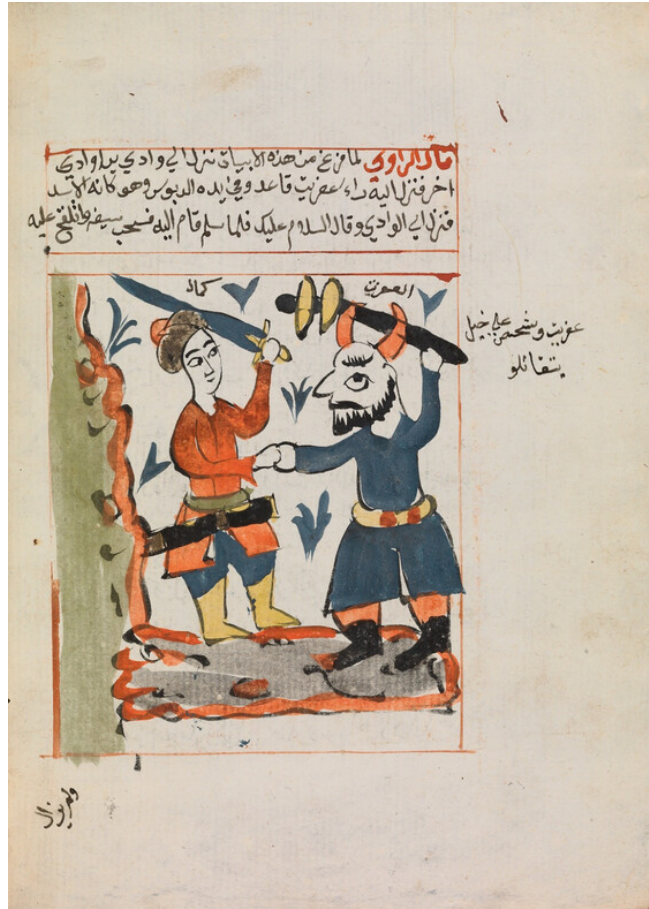 قال الراوي لما فرغ من هذه الابيات نزل الي وادي يراوادي
اخر فنزل اليه راء عفريت قاعد وفي ايده الدبوس وهو كانه الاسد
فنزل الي الوادي وقال السلام عليك فلما سلم قام اليه فسحب سيفه والتقي عليه
العفريت
عفريت وشخص علي خيل
يتقاتلو